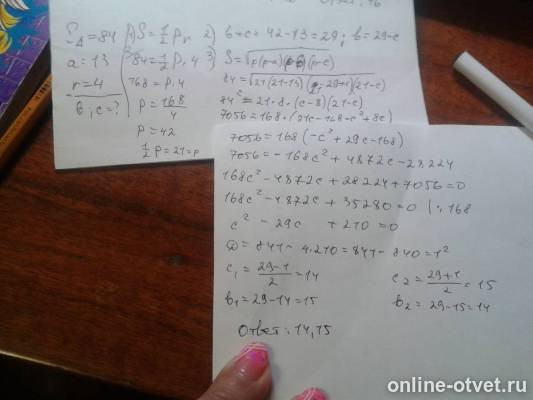 S△ = 84
a = 13
r = 4
b; c = ?
1) S = 1/2 Pr
84 = 1/2 P·4
168 = P·4
P = 168/4
P = 42
1/2 P = 21 = p
2) b + c = 42 - 13 = 29; b = 29 - c
3) S = √p(p-a)(p-b)(p-c)
84 = √21(21-13)(21-29+c)(21-c)
84² = 21·8·(c-8)(21-c)
7056 = 168·(21c - 168 - c² + 8c)
7056 = 168(-c² + 29c - 168)
7056 = -168c² + 4872c - 28224
168c² - 4872c + 28224 + 7056 = 0
168c² - 4872c + 35280 = 0 | : 168
c² - 29c + 210 = 0
D = 841 - 4·210 = 841 - 840 = 1²
c₁ = (29-1)/2 = 14
c₂ = (29+1)/2 = 15
b₁ = 29 - 14 = 15
b₂ = 29 - 15 = 14
Ответ: 14, 15
online-otvet.ru